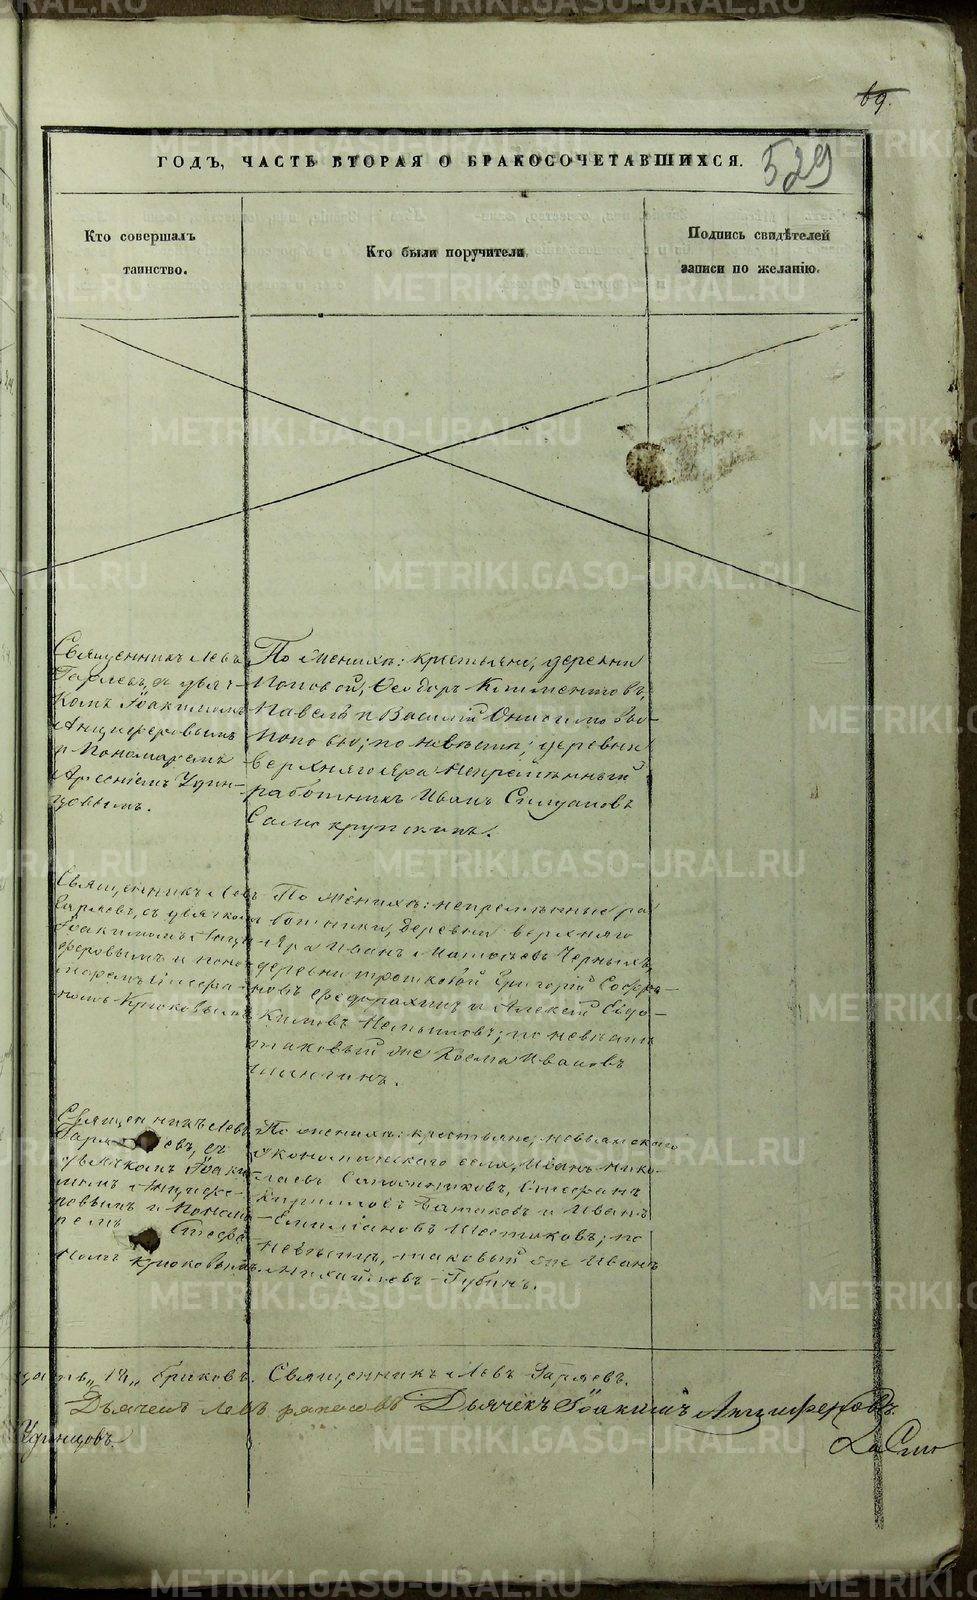 69.
529
ГОДЪ, ЧАСТЬ ВТОРАЯ О БРАКОСОЧЕТАВШИХСЯ.
Кто совершалъ
таинство.
Кто были поручители.
Подпись свидѣтелей
записи по желанію.
Священникъ Левъ
Гаряевъ, съ дьяч-
комъ Іоакимомъ
Анциферовымъ
и Пономаремъ
Арсеніемъ Удин-
цовымъ.
По женихѣ: крестьяне, деревни
Поповой, Ѳеодоръ Климентовъ,
Павелъ и Василій Онисимовы
Поповы; по невѣстѣ; деревни
Верхняго яра Непремѣнный
работникъ Иванъ
крупскихъ.
Священникъ Левъ
Гаряевъ, съ дьячкомъ
Іоакимомъ Анци-
феровымъ и поно-
маремъ Стефа-
номъ Крюковымъ
По женихѣ: непремѣнные ра
ботники, деревни Верхняго
Яра Иванъ Матвѣевъ Черныхъ,
деревни Григорій Софро-
новъ и Алексѣй Евдо-
кимовъ по невѣстѣ
таковый же Козма Ивановъ
Священникъ Левъ
Гаряевъ, съ
дьячкомъ Іоаки
момъ Анцифе-
ровымъ и Понома
ремъ Стефа
номъ Крюковымъ.
По женихѣ: крестьяне, Невьянскаго
Экономическаго села, Иванъ Нико-
лаевъ Стефанъ
Кирилловъ и Иванъ
Емиліановъ Шестаковъ; по
невѣстѣ, таковый же Иванъ
Михайловъ Губинъ.
браковъ. Священникъ Левъ Гаряевъ.
Дьячекъ Іоакимъ Анциферовъ.
Удинцовъ.
METRIKI.GASO-URAL.RU